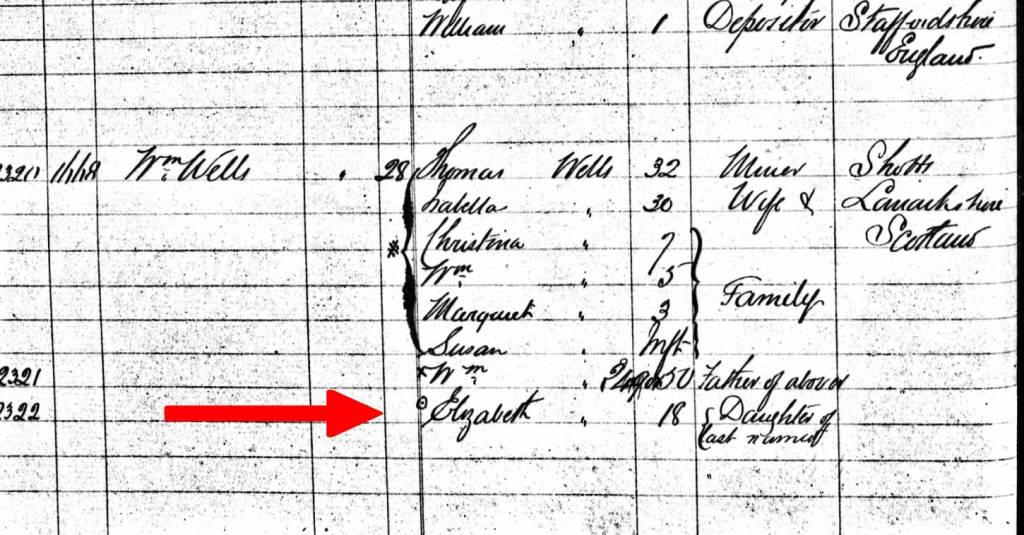 William " 1 Depositor Staffordshire
England.
2320 Wm. Wells " 28 Thomas Wells 32 Miner Shotts
Isabella " 30 Wife & Lanarkshire
* Christina " 7 Scotland
Wm. " 5
Family
Margaret " 3
Susan " Inft
2321 x Wm. " 50 Father of above
2322 Elizabeth " 18 Daughter of
last named